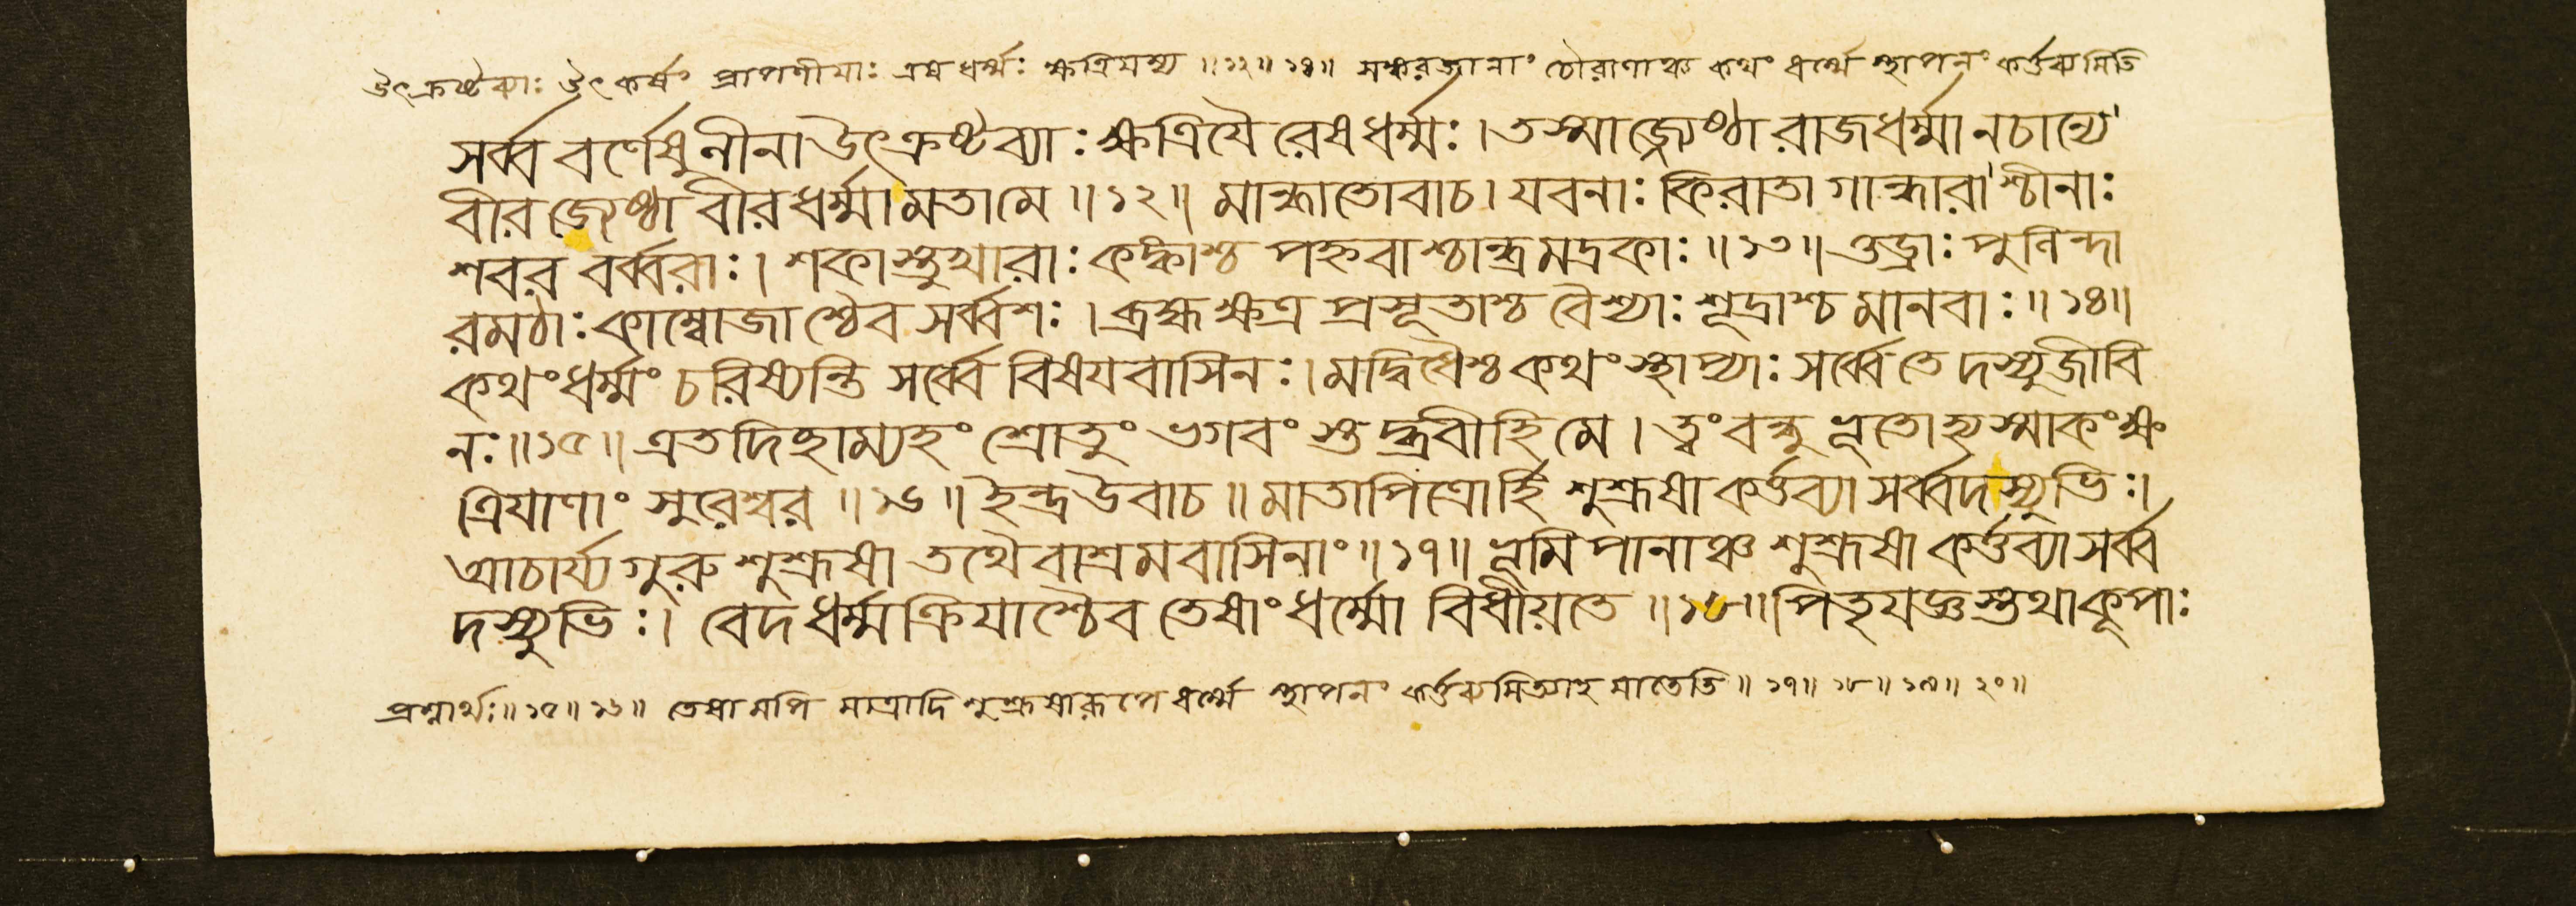 উৎক্রষ্টব্যাঃ উৎকর্ষং প্রাপণীয়াঃ এষধর্ম্মঃ ক্ষত্রিয়স্য ॥১২॥১৩॥ সঙ্করজানাং চৌরাণাঞ্চ কথং ধর্ম্মে স্থাপনং কর্ত্তব্যমিতি
সর্ব্ব বর্ণেষুনীনাউৎক্রষ্টব্যাঃ ক্ষত্রিযৈরেষধর্ম্মঃ।তস্মাজ্জ্যেষ্ঠারাজধর্ম্মানচান্যে
বীরজ্যেষ্ঠা বীরধর্ম্মামতামে॥১২॥ মান্ধাতোবাচ। যবনাঃ কিরাতা গান্ধারাশ্চীনাঃ
শবর বর্ব্বরাঃ। শকাস্তুখারাঃ কঙ্কাশ্চ পহ্নবাশ্চান্ধ্রমদ্রকাঃ॥১৩॥ওড্রাঃ পুলিন্দা
রমঠাঃকাম্বোজাশ্চৈব সর্ব্বশঃ।ব্রহ্মক্ষত্র প্রসূতাশ্চ বৈশ্যাঃ শূদ্রাশ্চ মানবাঃ॥১৪॥
কথংধর্ম্মং চরিষ্যন্তি সর্ব্বে বিষযবাসিনঃ।মদ্বিধৈশ্চকথং স্থাপ্যাঃ সর্ব্বেতে দস্যুজীবি
নঃ॥১৫॥ এতদিছাম্যহং শ্রোতুং ভগবংস্তদ্ব্রবীহিমে। ত্বংবন্ধু ভূতোহ্যস্মাকংক্ষ
ত্রিযাণাং সুরেশ্বর॥১৬॥ ইন্দ্রউবাচ॥মাতাপিত্রোর্হি শুশ্রূষা কর্ত্তব্যা সর্ব্বদস্যুভিঃ।
আচার্য্য গুরু শুশ্রূষা তথৈবাশ্রমবাসিনাং॥১৭॥ ভূমিপানাঞ্চ শুশ্রূষা কর্ত্তব্যা সর্ব্ব
দস্যুভিঃ। বেদধর্ম্মক্রিযাশ্চৈব তেষাংধর্ম্মো বিধীয়তে॥১৮॥পিতৃযজ্ঞস্তথাকূপাঃ
প্রশ্নার্থঃ॥১৫॥১৬॥ তেষামপি মাত্রাদি শুশ্রূষারূপে ধর্ম্মে স্থাপনং কর্ত্তব্যমিত্যাহ মাতেতি॥১৭॥১৮॥১৯॥২০॥